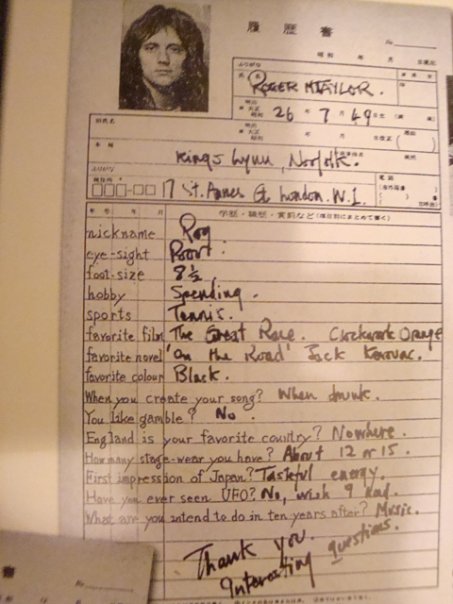 履歴書
No.
昭和 年 月 日
ふりがな
氏名 ROGER M TAYLOR. 印
明治 大正 昭和 26 年 7 月 49 日生
旧氏名
明治 大正 昭和 年 月 日
本籍 Kings Lynn, Norfolk.
ふりがな
現住所 17 St. Annes London. W.1. 電話
年号 年 月 学歴・職歴・賞罰など(項目別にまとめて書く)
nickname Rog
eye-sight Poor!
foot-size 8½
hobby Spending.
sports Tennis.
favorite film The Great Race. Clockwork Orange
favorite novel 'On the Road' Jack Kerouac.
favorite colour Black.
When you create your song? When drunk.
You like gamble? No.
England is your favorite country? Nowhere.
How many stage-wear you have? About 12 or 15.
First impression of Japan? Tasteful energy.
Have you ever seen UFO? No, wish I had.
What are you intend to do in ten years after? Music.
Thank you.
Interesting questions.
書
No.